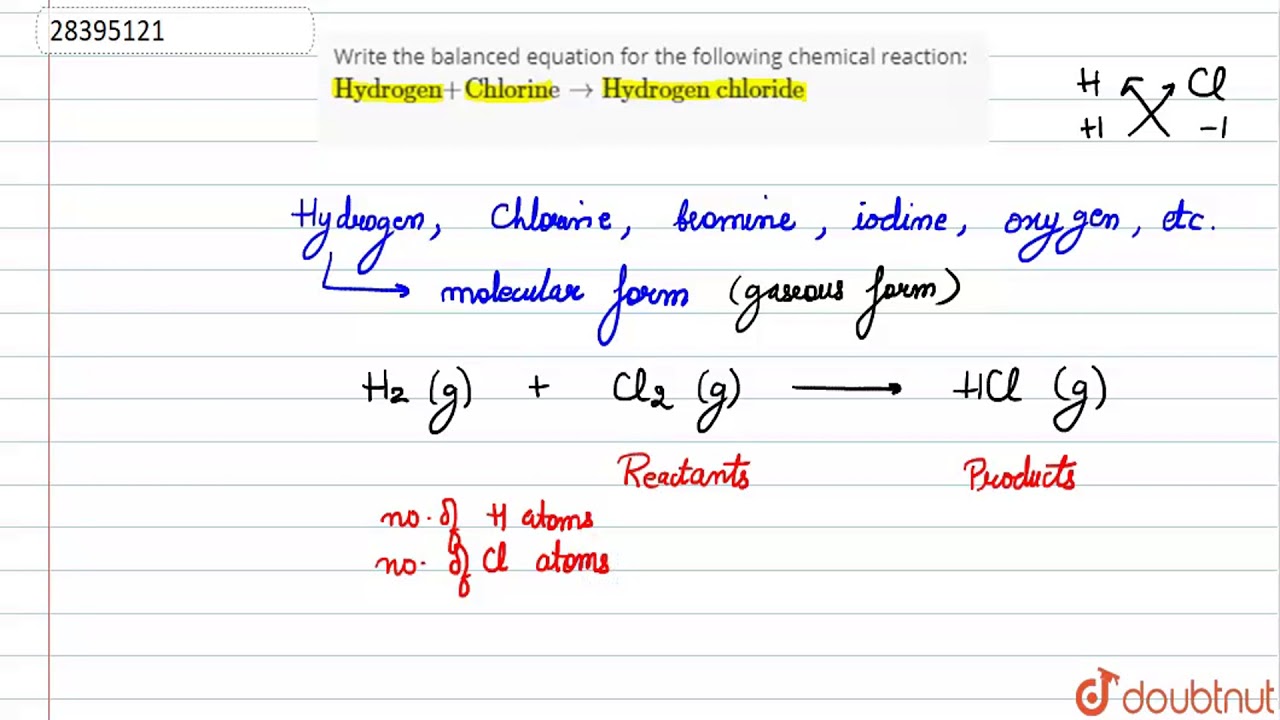 28395121
Write the balanced equation for the following chemical reaction:
Hydrogen+ Chlorine → Hydrogen chloride
H Cl
+1 -1
Hydrogen, Chlorine, bromine, iodine, oxygen, etc.
molecular form (gaseous form)
H2 (g) + Cl2 (g) → HCl (g)
Reactants Products
no. of H atoms
no. of Cl atoms
doubtnut